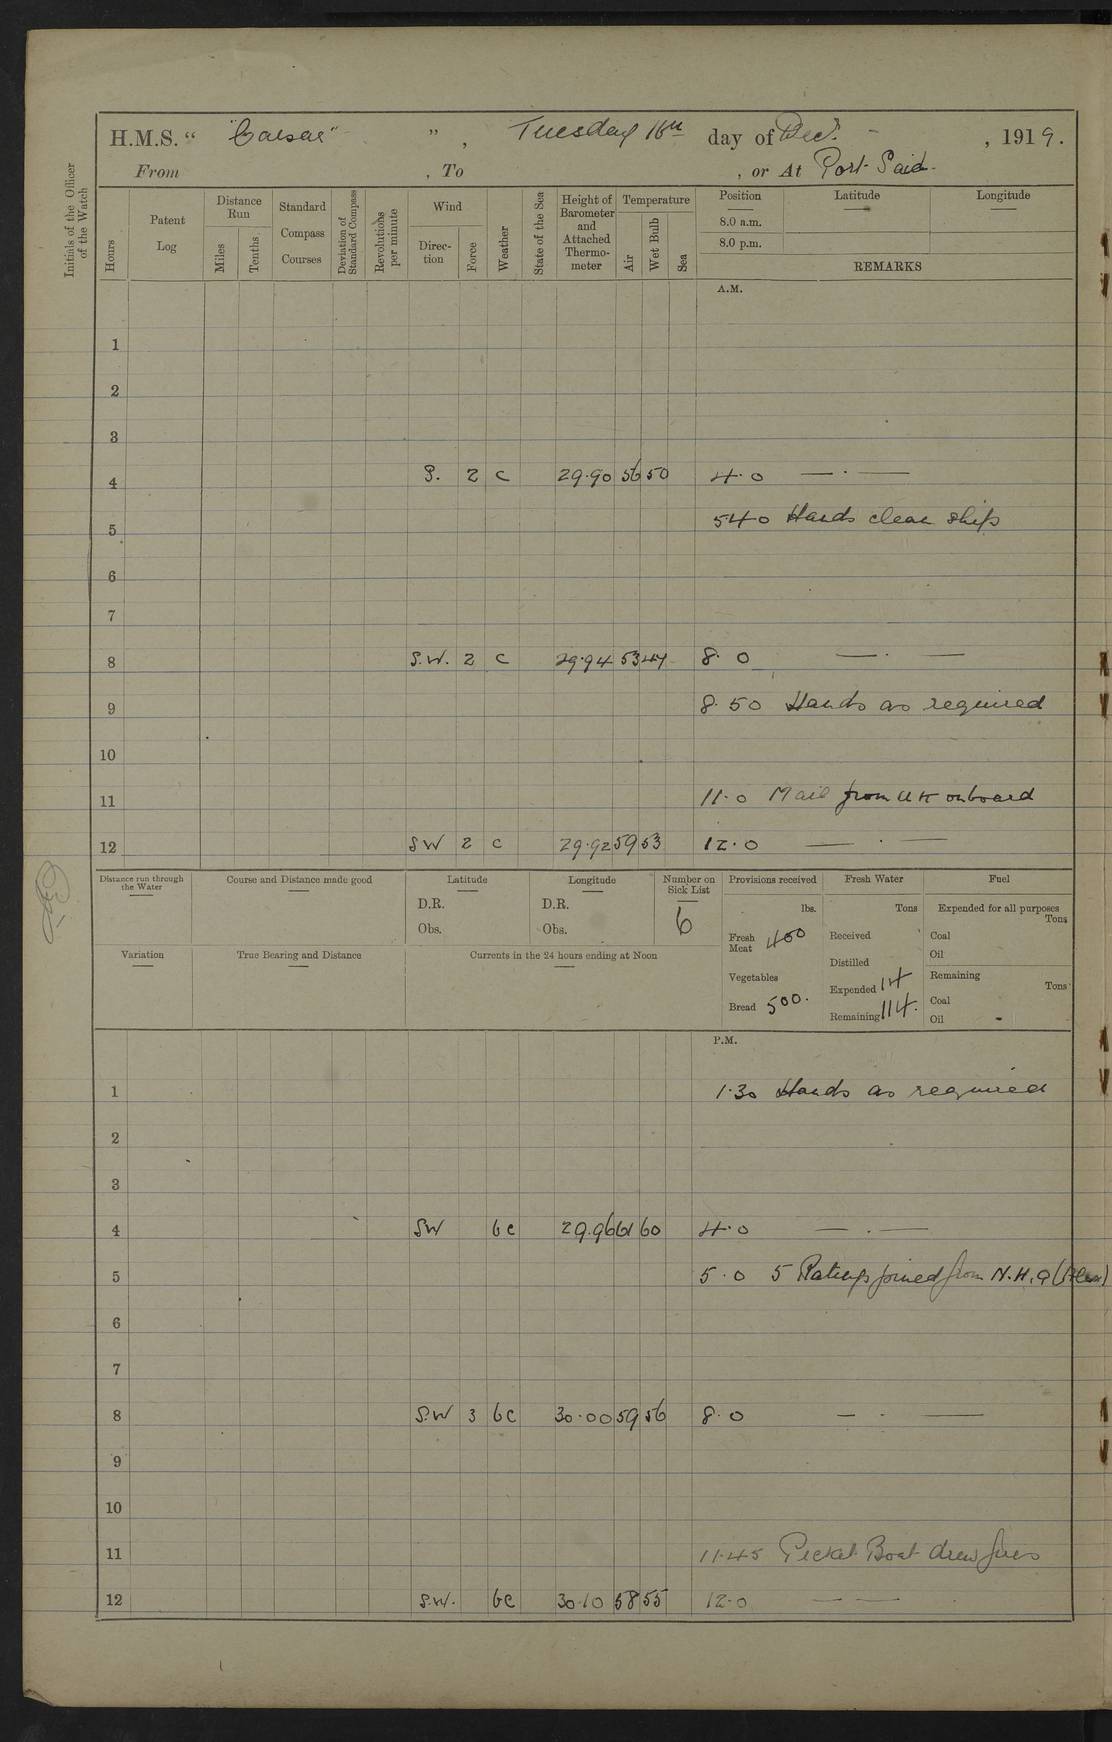 H.M.S. " "Caesar" ", Tuesday 16th day of Decr. , 1919.
From , To , or At Port Said.
Initials of the Officer of the Watch
Hours
Patent Log
Distance Run
Miles
Tenths
Standard Compass Courses
Deviation of Standard Compass
Revolutions per minute
Wind
Direction
Force
Weather
State of the Sea
Height of Barometer and Attached Thermometer
Temperature
Air
Wet Bulb
Sea
Position Latitude Longitude
8.0 a.m.
8.0 p.m.
REMARKS
A.M.
1
2
3
4 S. 2 c 29.90 56 50 4.0 — . —
5 5.40 Hands clean ship
6
7
8 S.W. 2 c 29.94 53 47 8.0 — . —
9 8.50 Hands as required
10
11 11.0 Mail from UK onboard
12 SW 2 c 29.92 59 53 12.0 — . —
Distance run through the Water
Course and Distance made good
Latitude
D.R.
Obs.
Longitude
D.R.
Obs.
Number on Sick List
6
Variation
True Bearing and Distance
Currents in the 24 hours ending at Noon
Provisions received
lbs.
Fresh Meat 400
Vegetables
Bread 500.
Fresh Water
Tons
Received
Distilled
Expended 14
Remaining 114.
Fuel
Expended for all purposes
Tons
Coal
Oil
Remaining
Tons
Coal
Oil -
P.M.
1 1.30 Hands as required
2
3
4 SW bc 29.96 61 60 4.0 — . —
5 5.0 5 Ratings joined from N.H.Q
6
7
8 S.W 3 bc 30.00 59 56 8.0 — . —
9
10
11 11.45 Picket Boat drew fires
12 S.W. bc 30.10 58 55 12.0 — —